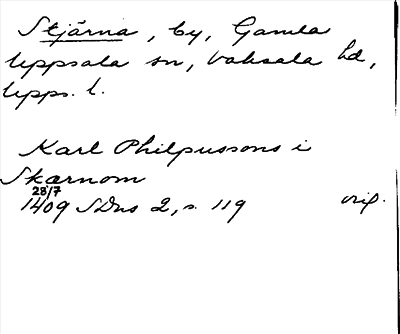 Stjärna, by, Gamla
Uppsala sn, Vaksala hd,
Upps. l.
Karl Philpussons i
Skærnom
28/7
1409 SDns 2, s. 119 orig.